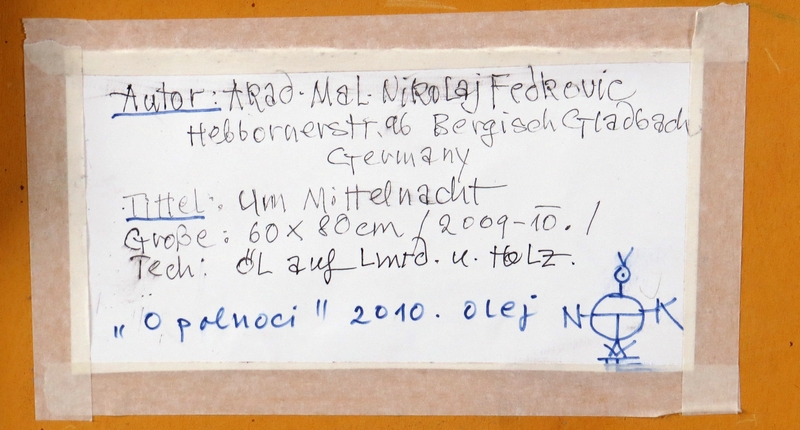 Autor: AKad. Mal. Nikolaj Fedkovic
Hebbornerstr. 96 Bergisch Gladbach
Germany
Tittel: Um Mittelnacht
Große: 60 x 80 cm / 2009-10. /
Tech: ÖL auf Lmrd. u. HoLz.
„ O polnoci " 2010. olej
N K